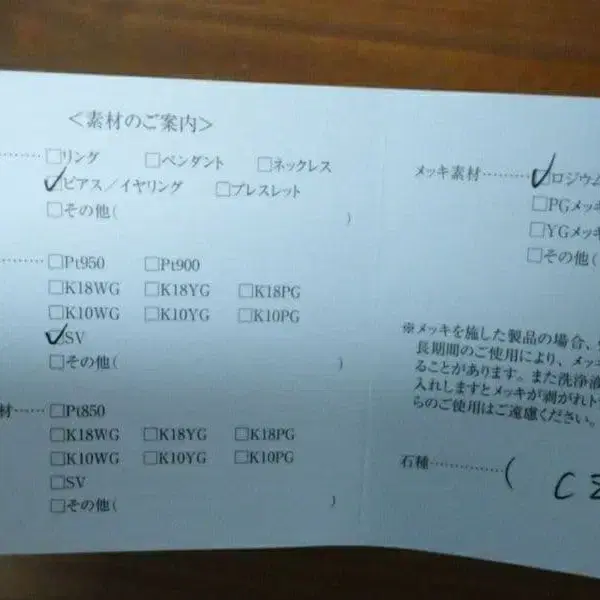 <素材のご案内>
………□リング □ペンダント □ネックレス
☑ピアス／イヤリング □ブレスレット
□その他( )
………□Pt950 □Pt900
□K18WG □K18YG □K18PG
□K10WG □K10YG □K10PG
☑SV
□その他( )
材……□Pt850
□K18WG □K18YG □K18PG
□K10WG □K10YG □K10PG
□SV
□その他( )
メッキ素材………☑ロジウム
□PGメッキ
□YGメッキ
□その他(
※メッキを施した製品の場合、
長期間のご使用により、メッキ
ることがあります。また洗浄液
入れしますとメッキが剥がれト
らのご使用はご遠慮ください。
石種……………( C